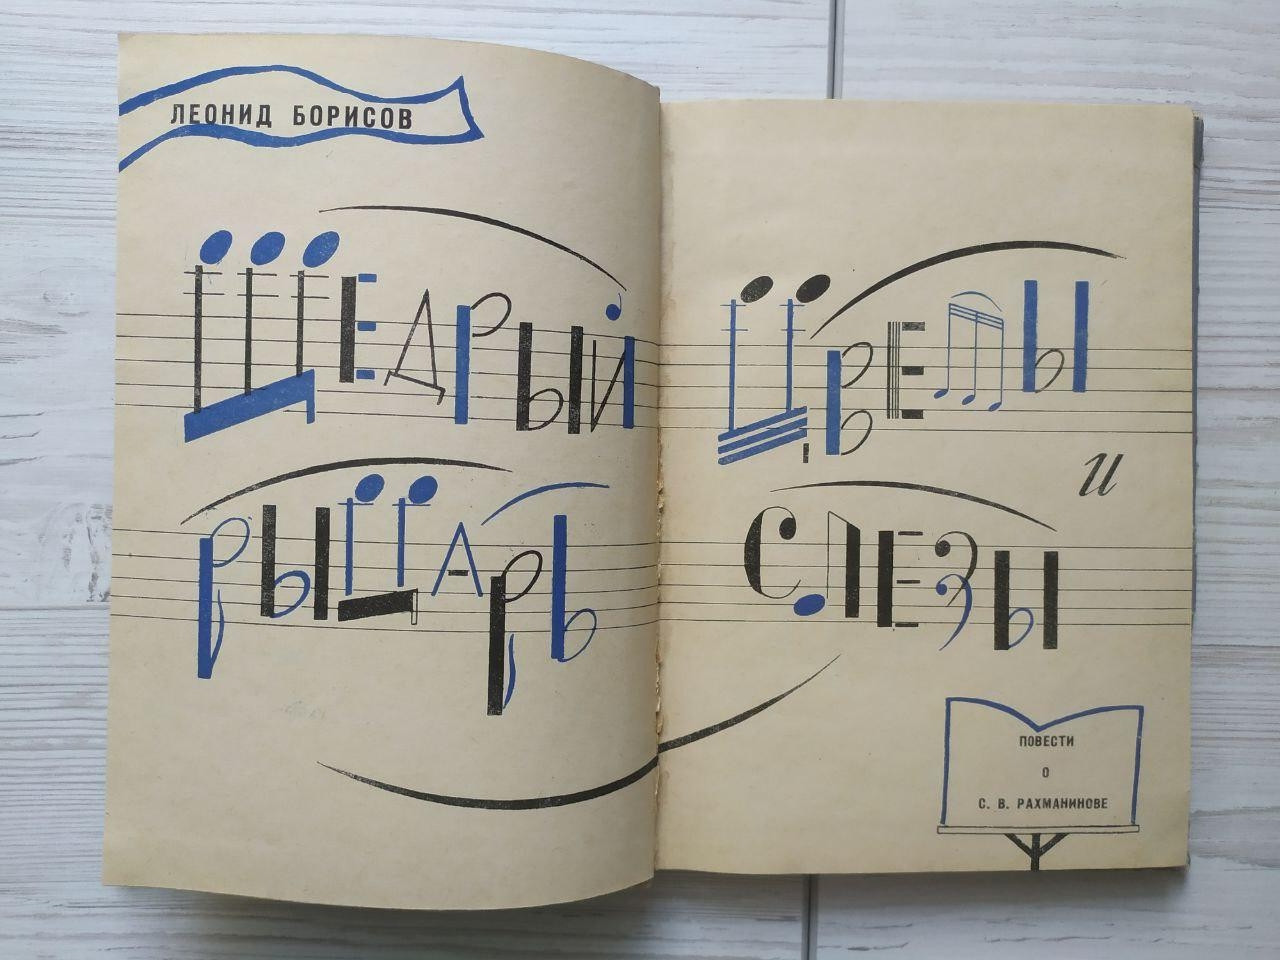 ЛЕОНИД БОРИСОВ
ЩЕДРЫЙ
РЫЦАРЬ
ЦВЕТЫ
и
СЛЕЗЫ
ПОВЕСТИ
О
С. В. РАХМАНИНОВЕ